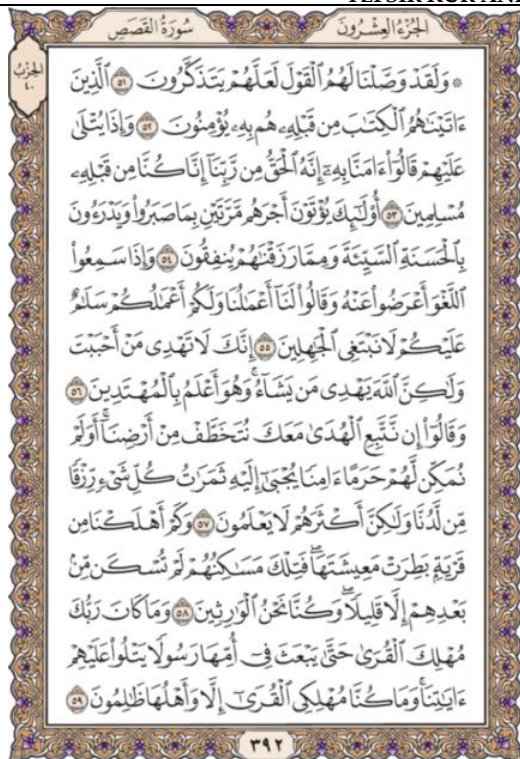 TEFSIR KUR'AN
الجُزْءُ العِشْرُونَ
سُورَةُ القَصَصِ
الحِزْبُ
٤٠
۞ وَلَقَدْ وَصَّلْنَا لَهُمُ ٱلْقَوْلَ لَعَلَّهُمْ يَتَذَكَّرُونَ ٥١ ٱلَّذِينَ
ءَاتَيْنَٰهُمُ ٱلْكِتَٰبَ مِن قَبْلِهِۦ هُم بِهِۦ يُؤْمِنُونَ ٥٢ وَإِذَا يُتْلَىٰ
عَلَيْهِمْ قَالُوٓا۟ ءَامَنَّا بِهِۦٓ إِنَّهُ ٱلْحَقُّ مِن رَّبِّنَآ إِنَّا كُنَّا مِن قَبْلِهِۦ
مُسْلِمِينَ ٥٣ أُو۟لَٰٓئِكَ يُؤْتَوْنَ أَجْرَهُم مَّرَّتَيْنِ بِمَا صَبَرُوا۟ وَيَدْرَءُونَ
بِٱلْحَسَنَةِ ٱلسَّيِّئَةَ وَمِمَّا رَزَقْنَٰهُمْ يُنفِقُونَ ٥٤ وَإِذَا سَمِعُوا۟
ٱللَّغْوَ أَعْرَضُوا۟ عَنْهُ وَقَالُوا۟ لَنَآ أَعْمَٰلُنَا وَلَكُمْ أَعْمَٰلُكُمْ سَلَٰمٌ
عَلَيْكُمْ لَا نَبْتَغِى ٱلْجَٰهِلِينَ ٥٥ إِنَّكَ لَا تَهْدِى مَنْ أَحْبَبْتَ
وَلَٰكِنَّ ٱللَّهَ يَهْدِى مَن يَشَآءُ ۚ وَهُوَ أَعْلَمُ بِٱلْمُهْتَدِينَ ٥٦
وَقَالُوٓا۟ إِن نَّتَّبِعِ ٱلْهُدَىٰ مَعَكَ نُتَخَطَّفْ مِنْ أَرْضِنَآ ۚ أَوَلَمْ
نُمَكِّن لَّهُمْ حَرَمًا ءَامِنًا يُجْبَىٰٓ إِلَيْهِ ثَمَرَٰتُ كُلِّ شَىْءٍ رِّزْقًا
مِّن لَّدُنَّا وَلَٰكِنَّ أَكْثَرَهُمْ لَا يَعْلَمُونَ ٥٧ وَكَمْ أَهْلَكْنَا مِن
قَرْيَةٍۭ بَطِرَتْ مَعِيشَتَهَا ۖ فَتِلْكَ مَسَٰكِنُهُمْ لَمْ تُسْكَن مِّنۢ
بَعْدِهِمْ إِلَّا قَلِيلًا ۖ وَكُنَّا نَحْنُ ٱلْوَٰرِثِينَ ٥٨ وَمَا كَانَ رَبُّكَ
مُهْلِكَ ٱلْقُرَىٰ حَتَّىٰ يَبْعَثَ فِىٓ أُمِّهَا رَسُولًا يَتْلُوا۟ عَلَيْهِمْ
ءَايَٰتِنَا ۚ وَمَا كُنَّا مُهْلِكِى ٱلْقُرَىٰٓ إِلَّا وَأَهْلُهَا ظَٰلِمُونَ ٥٩
٣٩٢